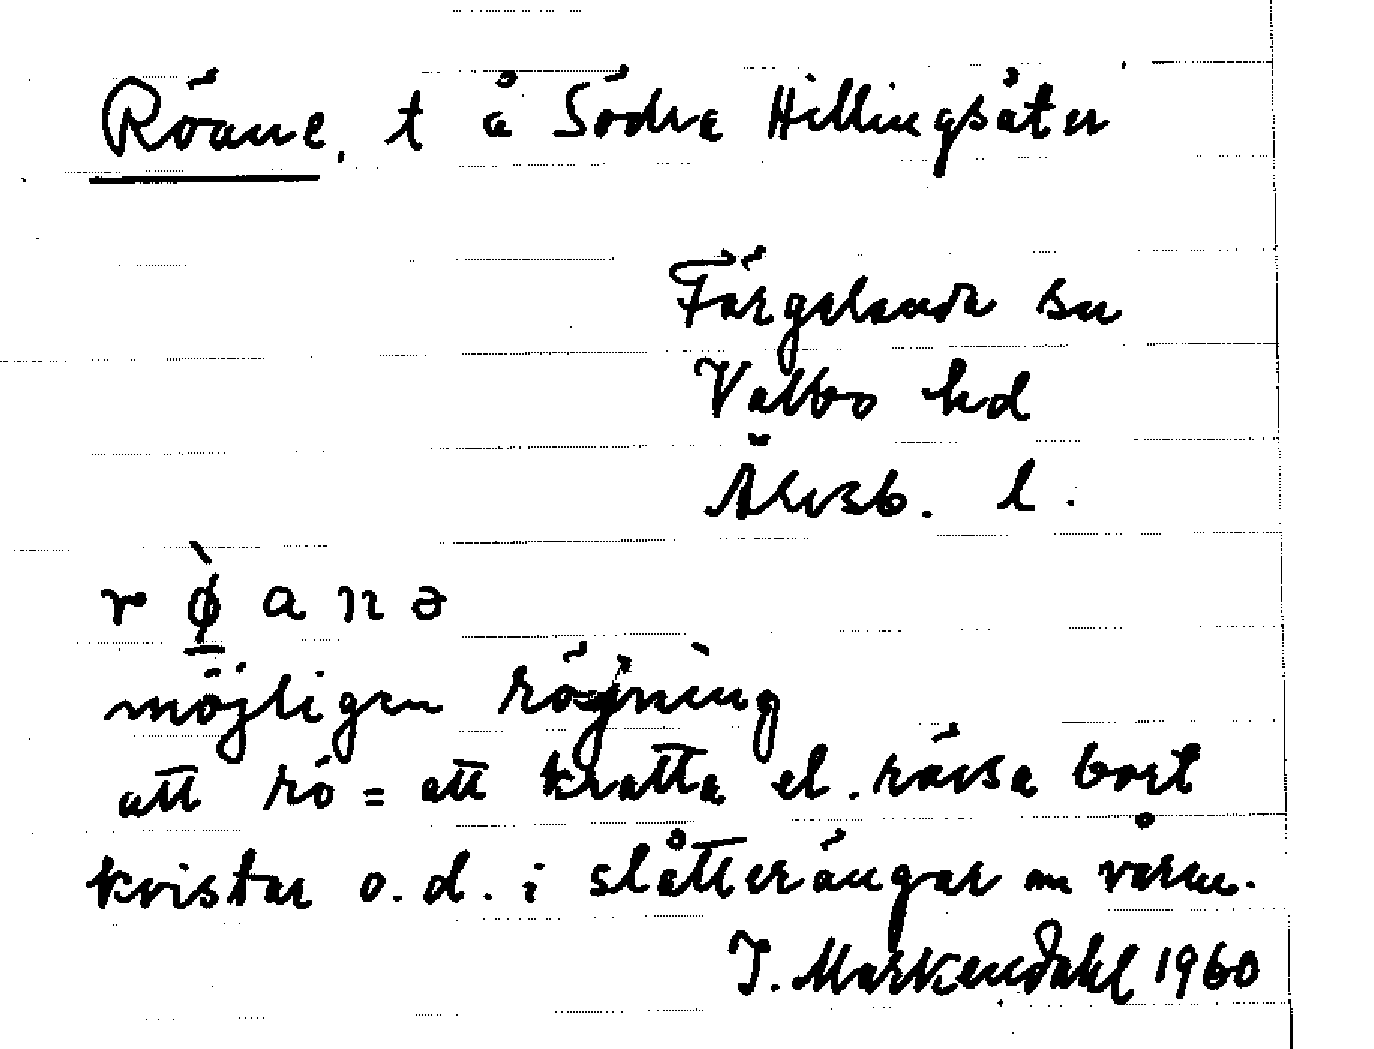 Röane, t å Södra Hillingsäter
Färgelanda sn
Valbo hd
Älvsb. l.
r ø̀ a n ə
möjligen röjning
att rö = att kratta el. räfsa bort
kvistar o.d. i slåtterängar om våren.
J. Markendahl 1960